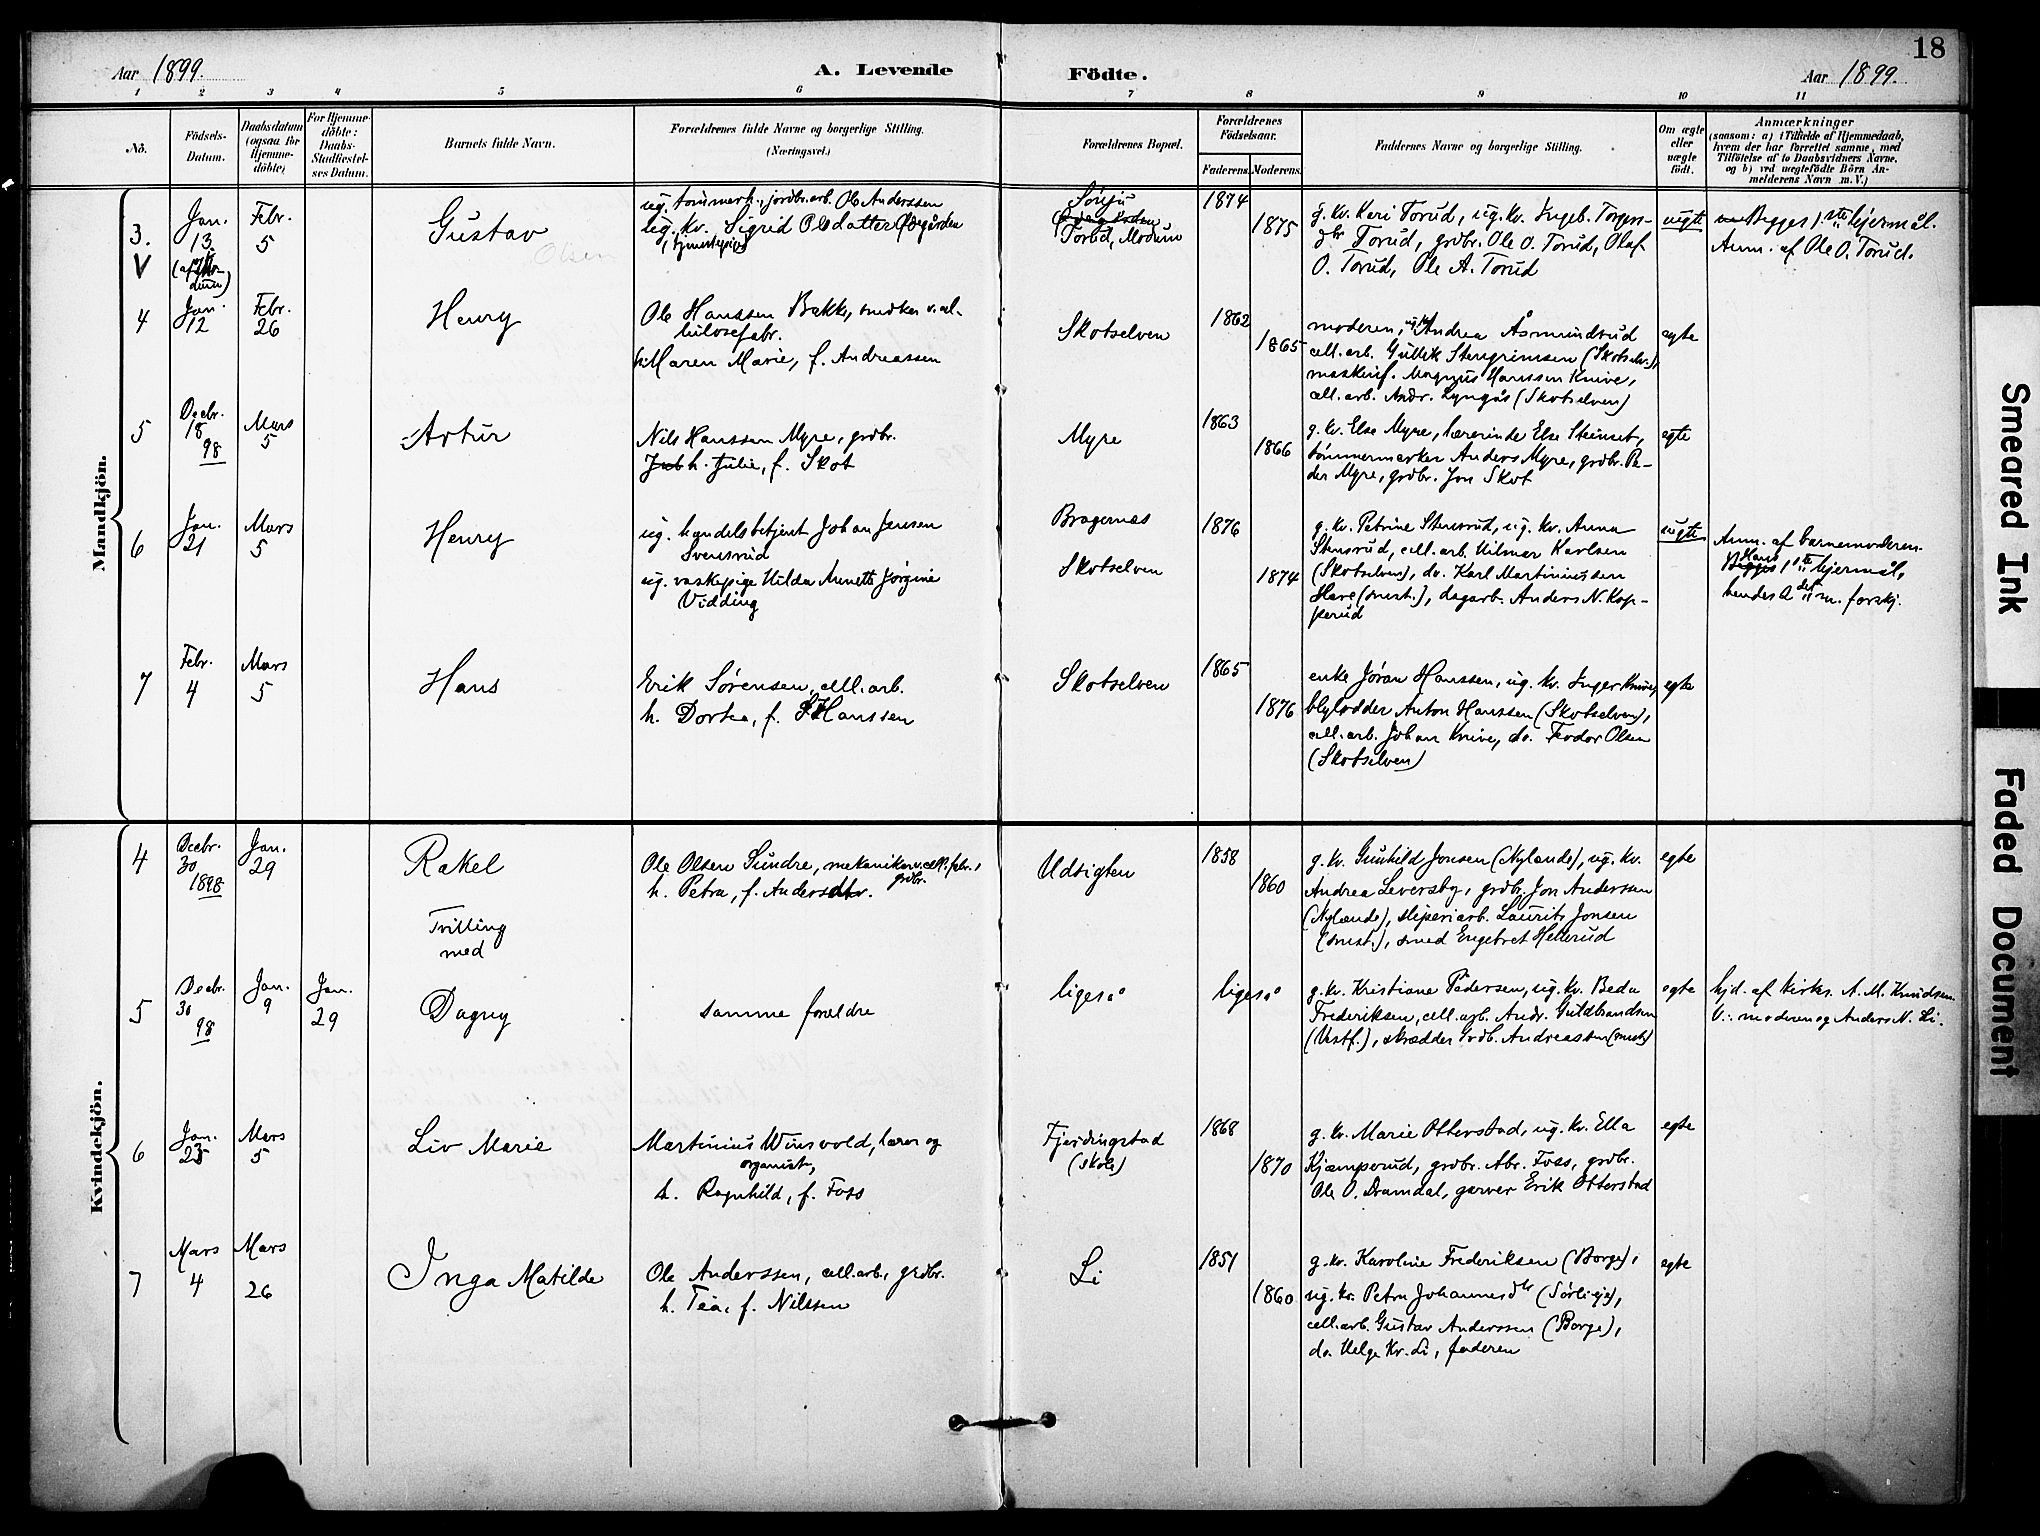 18
Aar 1899.
A. Levende
Födte.
Aar 1899.
1 2 3 4 5 6 7 8 9 10 11
No.
Födsels-
Datum.
Daabsdatum
(ogsaa for
Hjemme-
döbte)
For Hjemme-
döbte:
Daabs-
Stadfæstel-
ses Datum.
Barnets fulde Navn.
Forældrenes fulde Navne og borgerlige Stilling.
(Næringsvei.)
Forældrenes Bopæl.
Forældrenes
Födselsaar.
Faderens.
Moderens.
Faddernes Navne og borgerlige Stilling.
Om ægte
eller
uægte
födt.
Anmærkninger
(saasom: a) i Tilfælde af Hjemmedaab,
hvem der har forrettet samme, med
Tilföielse af to Daabsvidners Navne.
og b) ved uegtefödte Börn An-
melderens Navn m.V.)
Mandkjön.
3.
V
Jan.
13
Febr.
5
Gustav
Olsen
ug. tømmerh., jordbr.arb. Ole Anderssen
ug. kv. Sigrid Olsdatter Ødegården
(tjenestepige)
Sønju
Torud, Modum
1874
1875
g. kv. Kari Torud, ug. kv. Ingeb. Torgers-
dtr Torud, grdbr. Ole O. Torud, Olaf
O. Torud, Ole A. Torud
uegte
Begges 1ste hjermål.
Anm. af Ole O. Torud.
4
Jan.
12
Febr.
26
Henry
Ole Hanssen Bakke, snedker v. cel-
lulosefabr.
h. Maren Marie, f. Andreassen
Skotselven
1862
1865
moderen, ug. kv. Andrea Åsmundsrud
cell. arb. Gullik Stengrimsen (Skotselv.),
maskinf. Magnus Hanssen Knive,
cell. arb. Andr. Lyngås (Skotselven)
egte
5
Decbr.
18
98
Mars
5
Artur
Nils Hanssen Myre, grdbr.
h. Julie, f. Skot
Myre
1863
1866
g. kv. Else Myre, lærerinde Else Steinset,
tømmermerker Anders Myre, grdbr. Pe-
der Myre, grdbr. Jon Skot
egte
6
Jan.
21
Mars
5
Henry
ug. handelsbetjent Johan Jensen
Svensrud
ug. vaskepige Hilda Annette Jørgine
Vidding
Bragernæs
Skotselven
1876
1874
g. kv. Petrine Stensrud, ug. kv. Anna
Stensrud, cell. arb. Hilmar Karlsen
(Skotselven), do. Karl Martiniussen
Hare (smst.), dagarb. Anders N. Kop-
perud
uegte
Anm. af barnemoderen.
Hans
Begges 1ste hjermål,
hendes 2det m. forskj.
7
Febr.
4
Mars
5
Hans
Erik Sørensen, cell. arb.
h. Dortea, f. Hanssen
Skotselven
1865
1876
enke Jøran Hanssen, ug. kv. Inger Knive,
blylodder Anton Hanssen (Skotselven),
cell. arb. Johan Knive, do. Teodor Olsen
(Skotselven)
egte
Kvindekjön.
4
Decbr.
30
1898
Jan.
29
Rakel
Tvilling
med
Ole Olsen Sundre, mekaniker v. cell. fabr.,
grdbr.
h. Petra, f. Andersdtr.
Udsigten
1858
1860
g. kv. Gunhild Jonsen (Nylænde), ug. kv.
Andrea Leversby, grdbr. Jon Anderssen
(Nylænde), sliperiarb. Laurits Jonsen
(smst.), smed Engebret Hellerud
egte
5
Decbr.
30
98
Jan.
9
Jan.
29
Dagny
samme forældre
ligeså
ligeså
g. kv. Kristiane Pedersen, ug. kv. Beda
Frederiksen, cell. arb. Andr. Guldbrandsen
(Vestf.), skrædder Grdb. Andreassen (smst.)
egte
hjd. af kirkes. A. M. Knudsen.
V.: moderen og Anders N. Li.
6
Jan.
25
Mars
5
Liv Marie
Martinius Winsvold, lærer og
organist,
h. Ragnhild, f. Foss
Fjerdingstad
(skole)
1868
1870
g. kv. Marie Otterstad, ug. kv. Ella
Kjæmperud, grdbr. Abr. Foss, grdbr.
Ole O. Dramdal, garver Erik Otterstad
egte
7
Mars
4
Mars
26
Inga Matilde
Ole Anderssen, cell. arb., grdbr.
h. Tea, f. Nilssen
Li
1851
1860
g. kv. Karoline Frederiksen (Borge),
ug. kv. Petra Johannesdtr (Sørlieje),
cell. arb. Gustav Anderssen (Borge),
do. Helge Kr. Li, faderen
egte
Smeared Ink
Faded Document